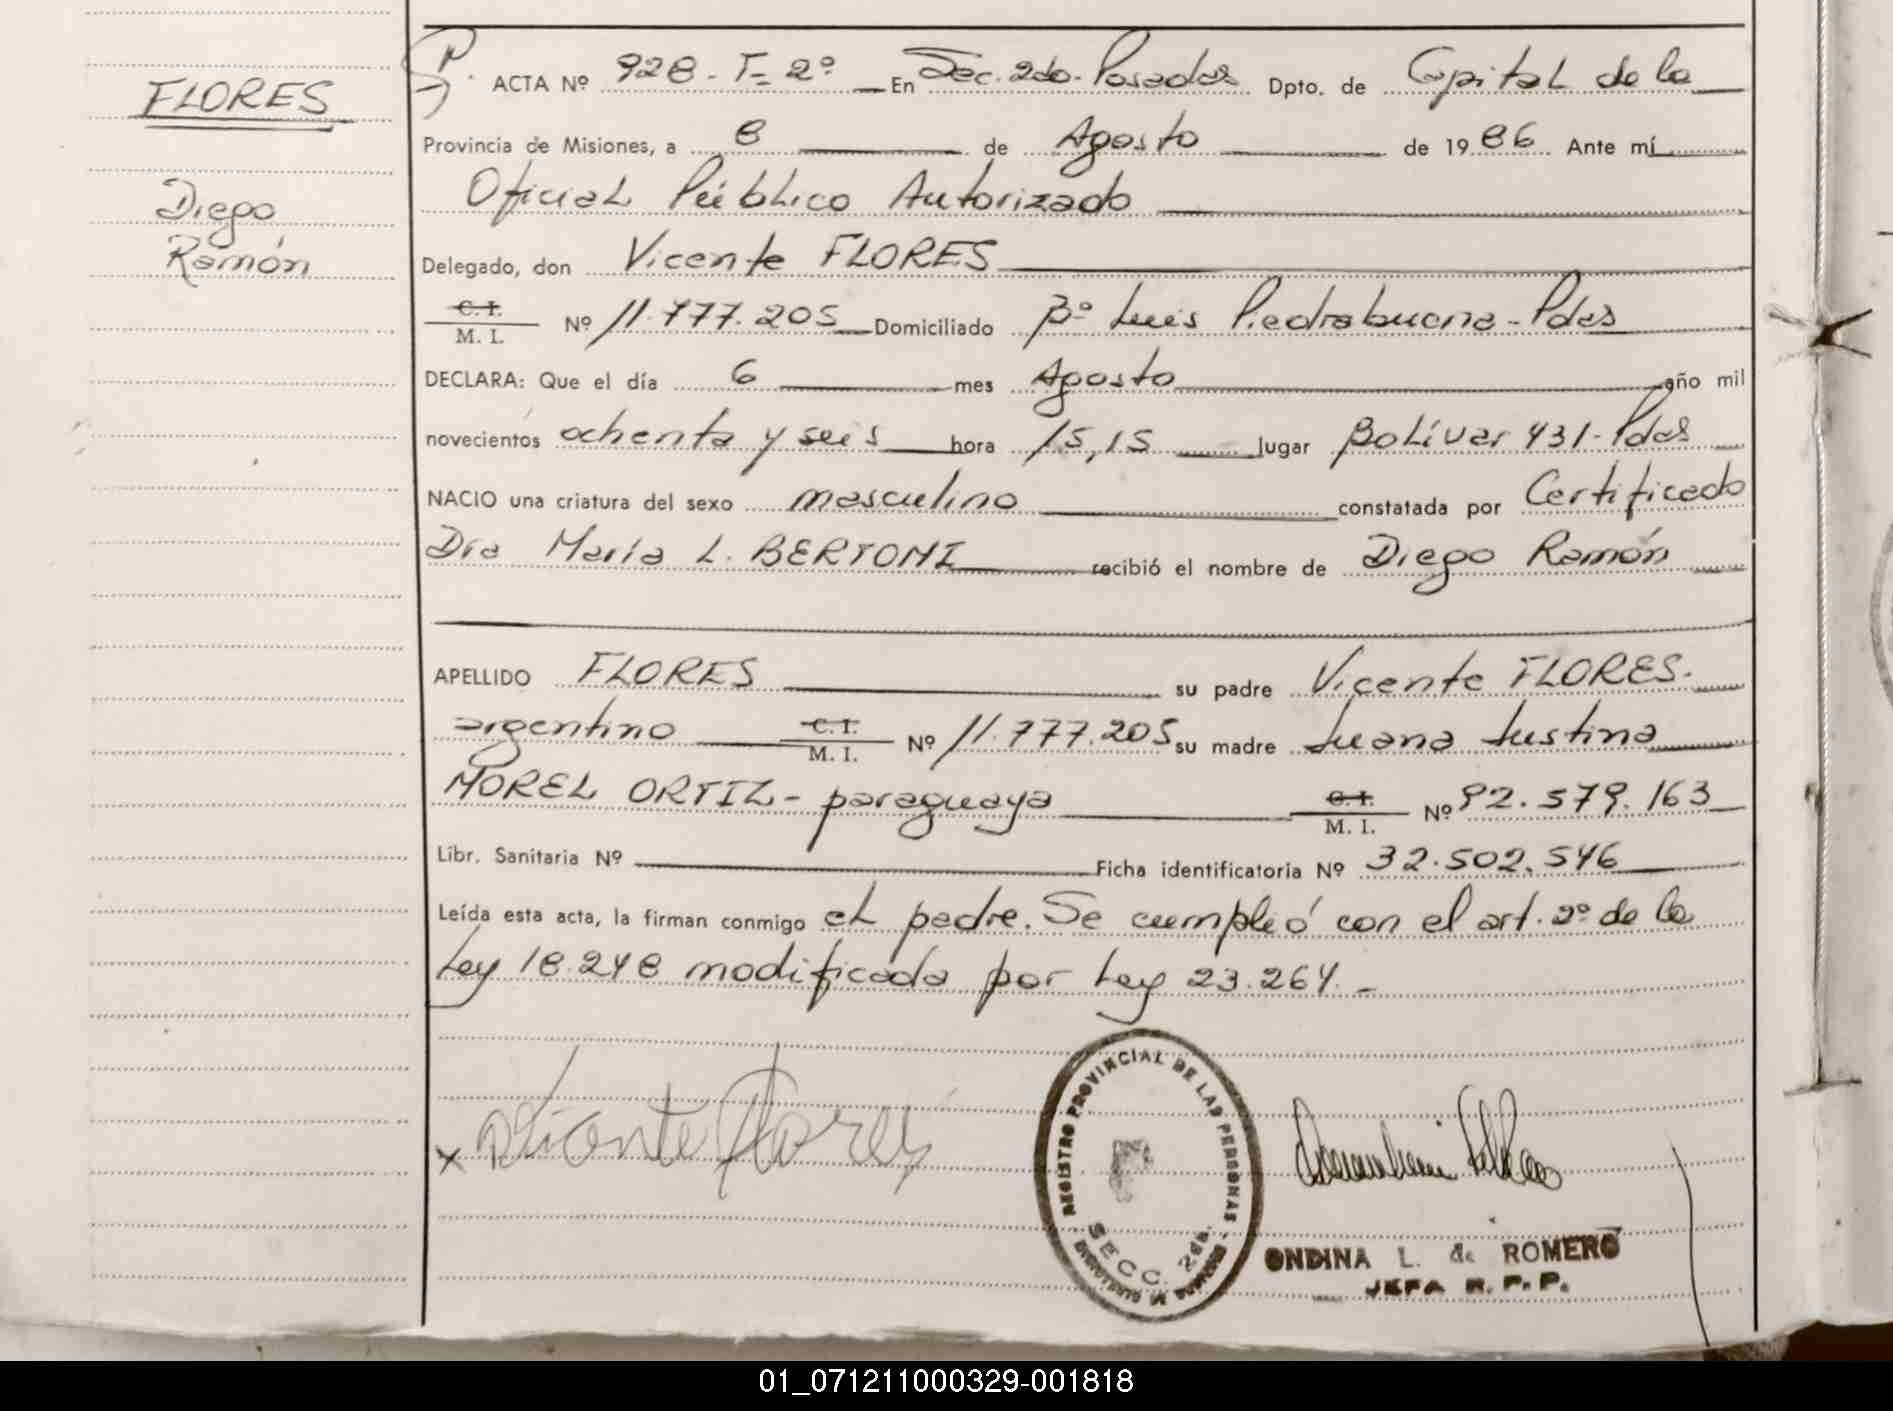 FLORES
Diego
Ramón
ACTA Nº 928-T=2º En Sec. 2do. Posadas Dpto. de Capital de la
Provincia de Misiones, a 8 de Agosto de 1986 Ante mí
Oficial Público Autorizado
Delegado, don Vicente FLORES
C.I.
M. I. Nº 11.777.205 Domiciliado Bº Luis Piedrabuena-Pdas
DECLARA: Que el día 6 mes Agosto año mil
novecientos ochenta y seis hora 15,15 lugar Bolívar 431-Pdas
NACIO una criatura del sexo masculino constatada por Certificado
Dra María L. BERTONI recibió el nombre de Diego Ramón
APELLIDO FLORES su padre Vicente FLORES.
argentino C.I. M. I. Nº 11.777.205 su madre Juana Justina
MOREL ORTIZ - paraguaya C.I. M. I. Nº 92.579.163
Libr. Sanitaria Nº Ficha identificatoria Nº 32.502.546
Leída esta acta, la firman conmigo el padre. Se cumplió con el art. 2º de la
Ley 18.248 modificada por Ley 23.264. -
x Vicente Flores
REGISTRO PROVINCIAL DE LAS PERSONAS
SECC. 2da.
ONDINA L. de ROMERO
JEFA R. P. P.
01_071211000329-001818